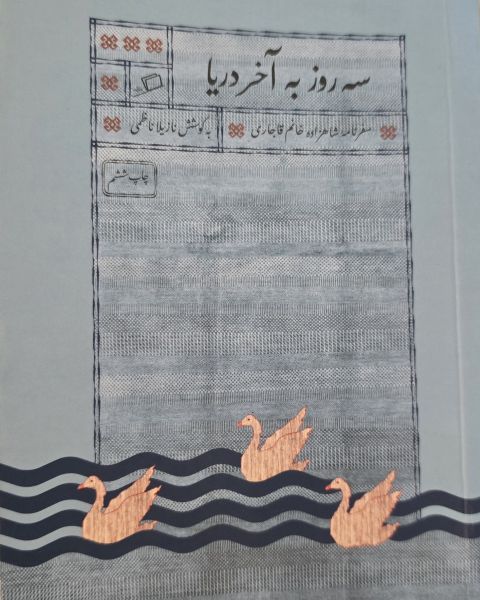 سه روز به آخر دریا
سفرنامه شاهزاده خانم قاجاری
به کوشش نازیلا ناظمی
چاپ ششم